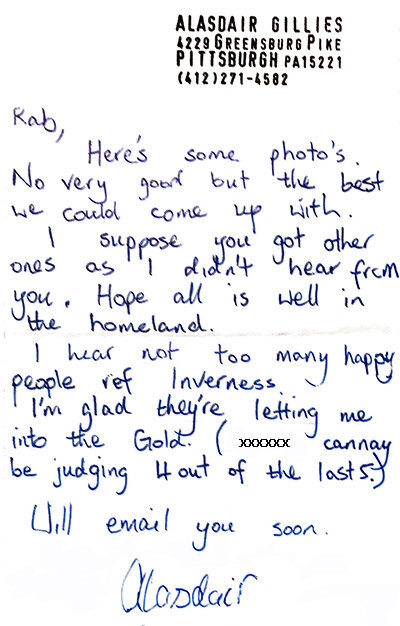 ALASDAIR GILLIES
4229 GREENSBURG PIKE
PITTSBURGH PA15221
(412)271-4582
Rab,
Here's some photo's.
No very good but the best
we could come up with.
I suppose you got other
ones as I didn't hear from
you. Hope all is well in
the homeland.
I hear not too many happy
people ref Inverness.
I'm glad they're letting me
into the Gold. ( xxxxxx cannay
be judging 4 out of the last 5.)
Will email you soon.
Alasdair